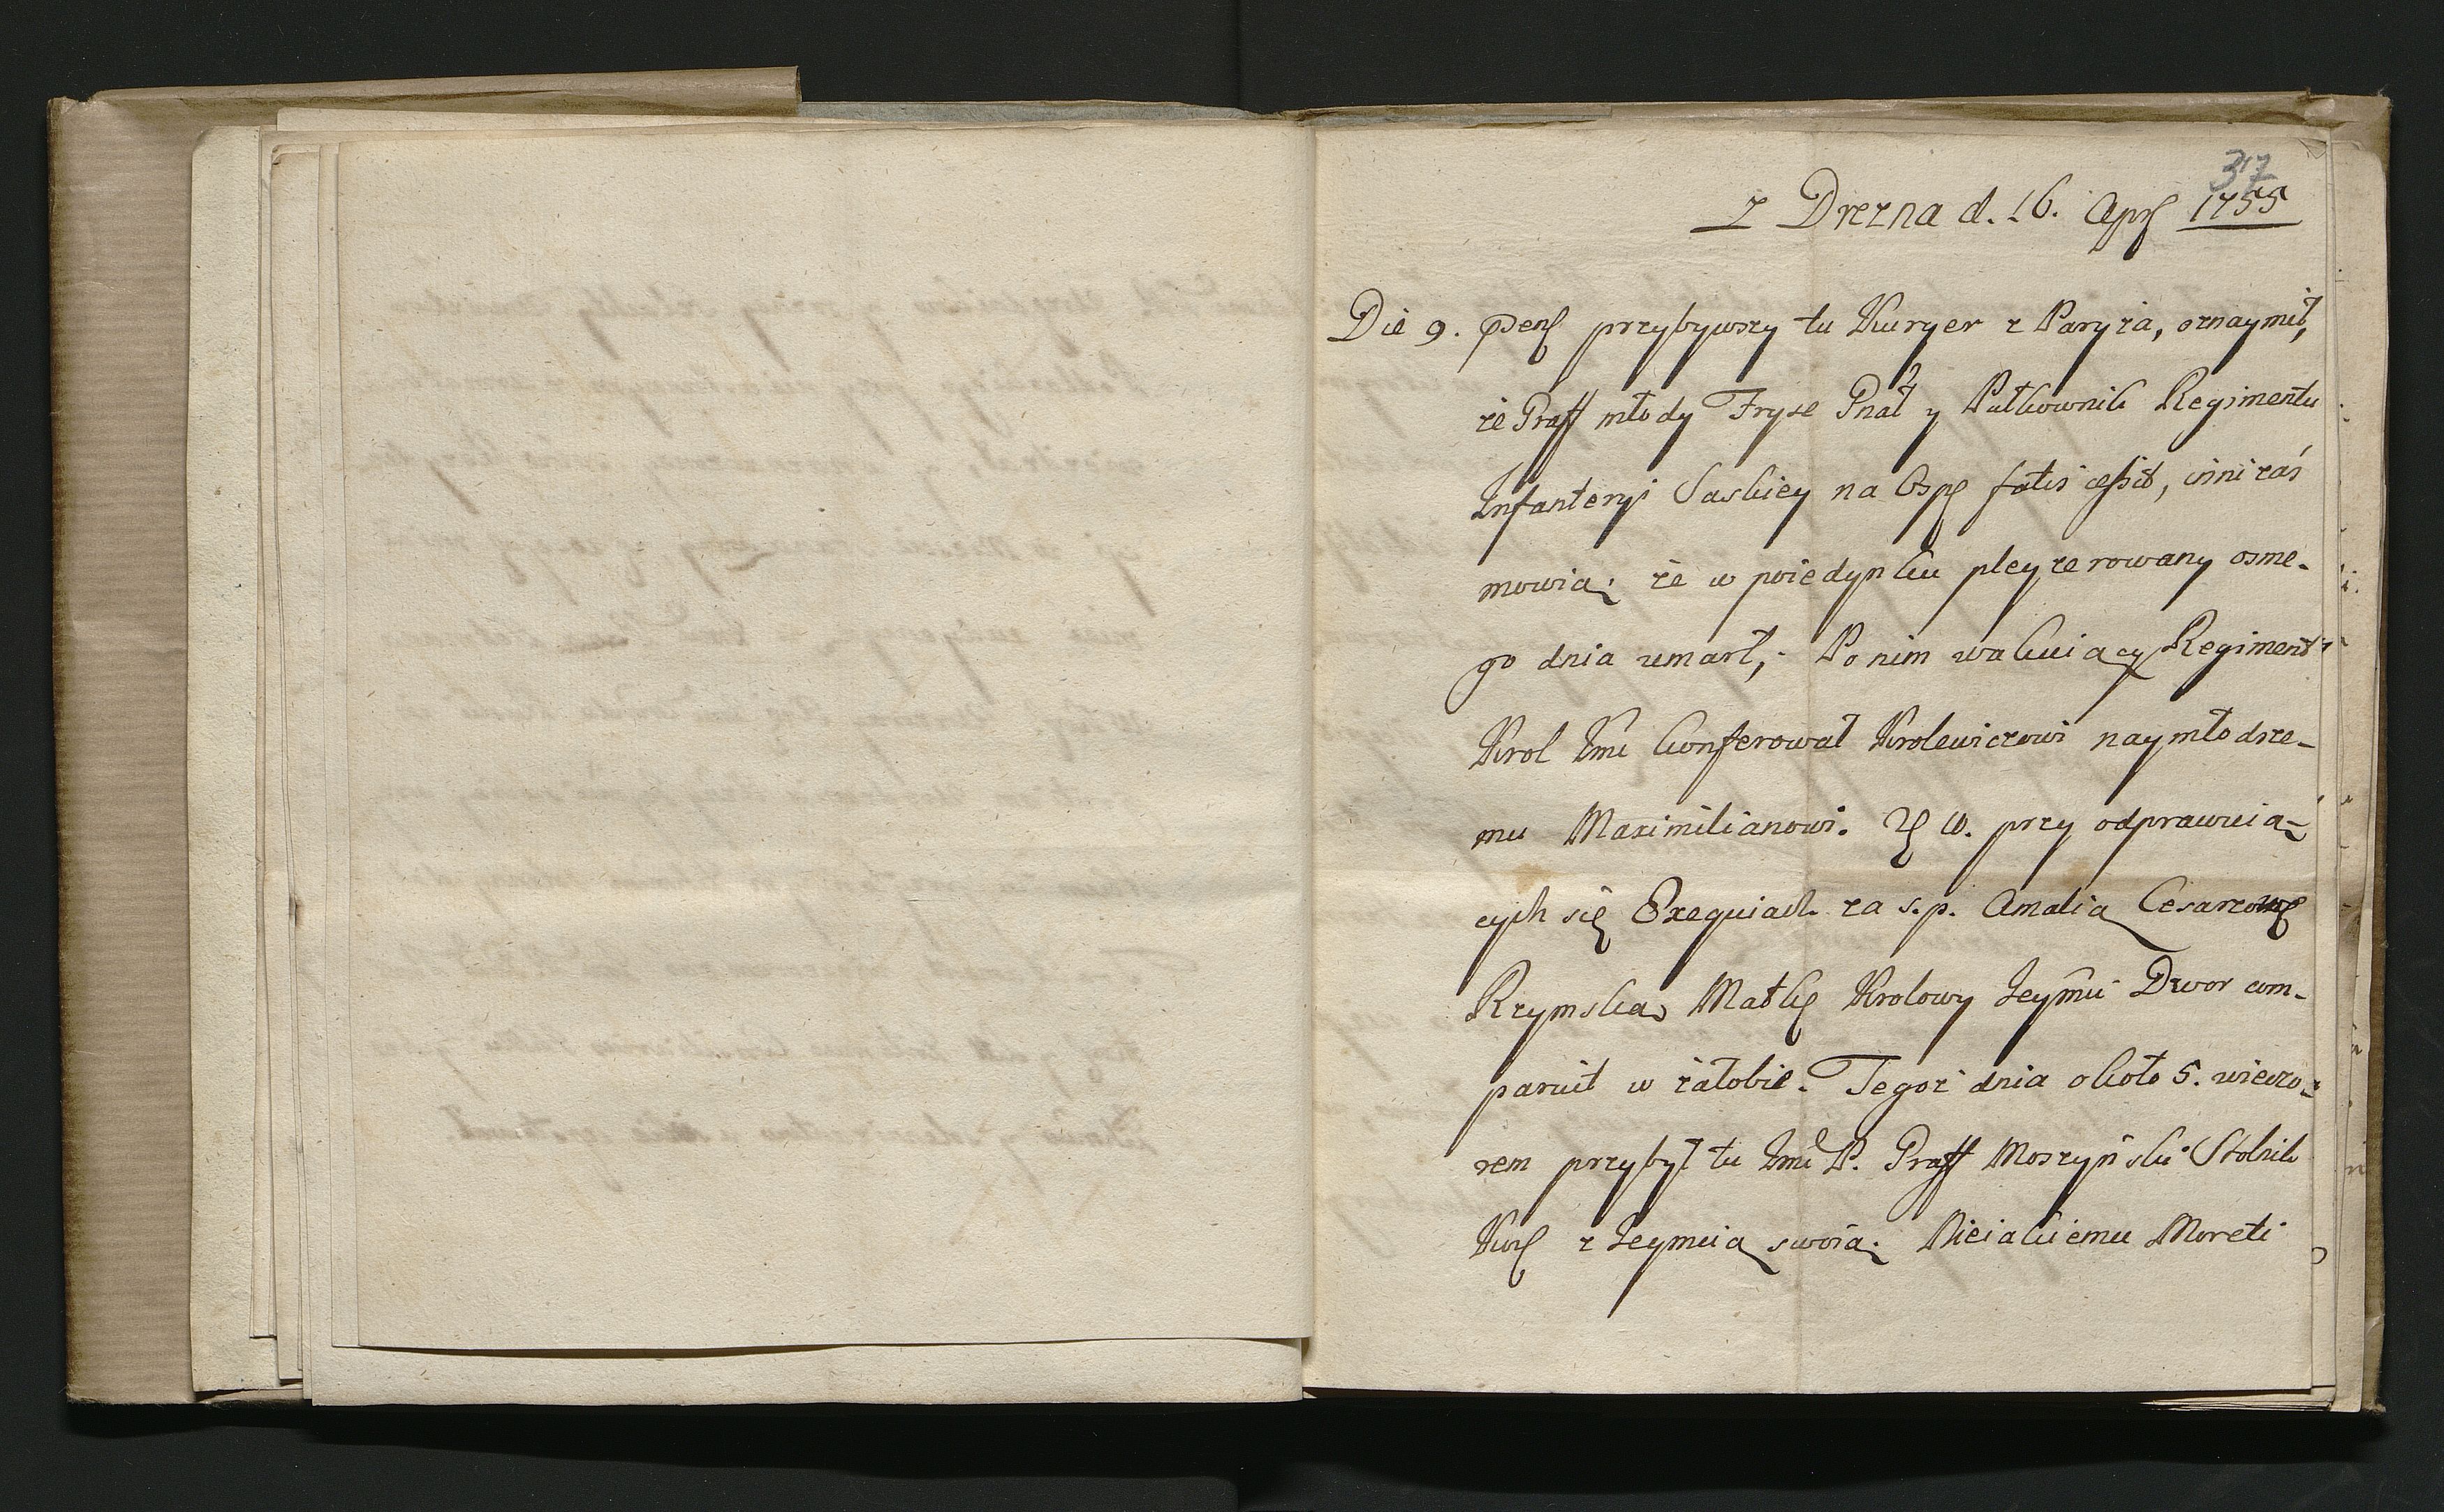 37
z Drezna d. 16. Apr 1755
Die 9. praesen przybywszy tu Kuryer z Paryża, oznaymił,
że Graff młody Fryse Gnał y Pułkownik Regimentu
Infanteryi Saskiey na Ospę fatis cessit, inni zaś
mowią; że w poiedynku pleyzerowany osme-
go dnia umarł; Po nim wakuiący Regiment
Krol Jmć konferował Krolewiczowi naymłodsze-
mu Maximilianowi. w. przy odprawuią-
cych się Exequiach za s. p. Amalią Cesarzową
Rzymską Matkę Krolowy Jeymci Dwor com-
paruit w żałobie. Tegoż dnia około 5. wieczo-
rem przybył tu Jmć P. Graff Moszyński Stolnik
Kor z Jeymcią swoią; Nieiakiemu Moreti